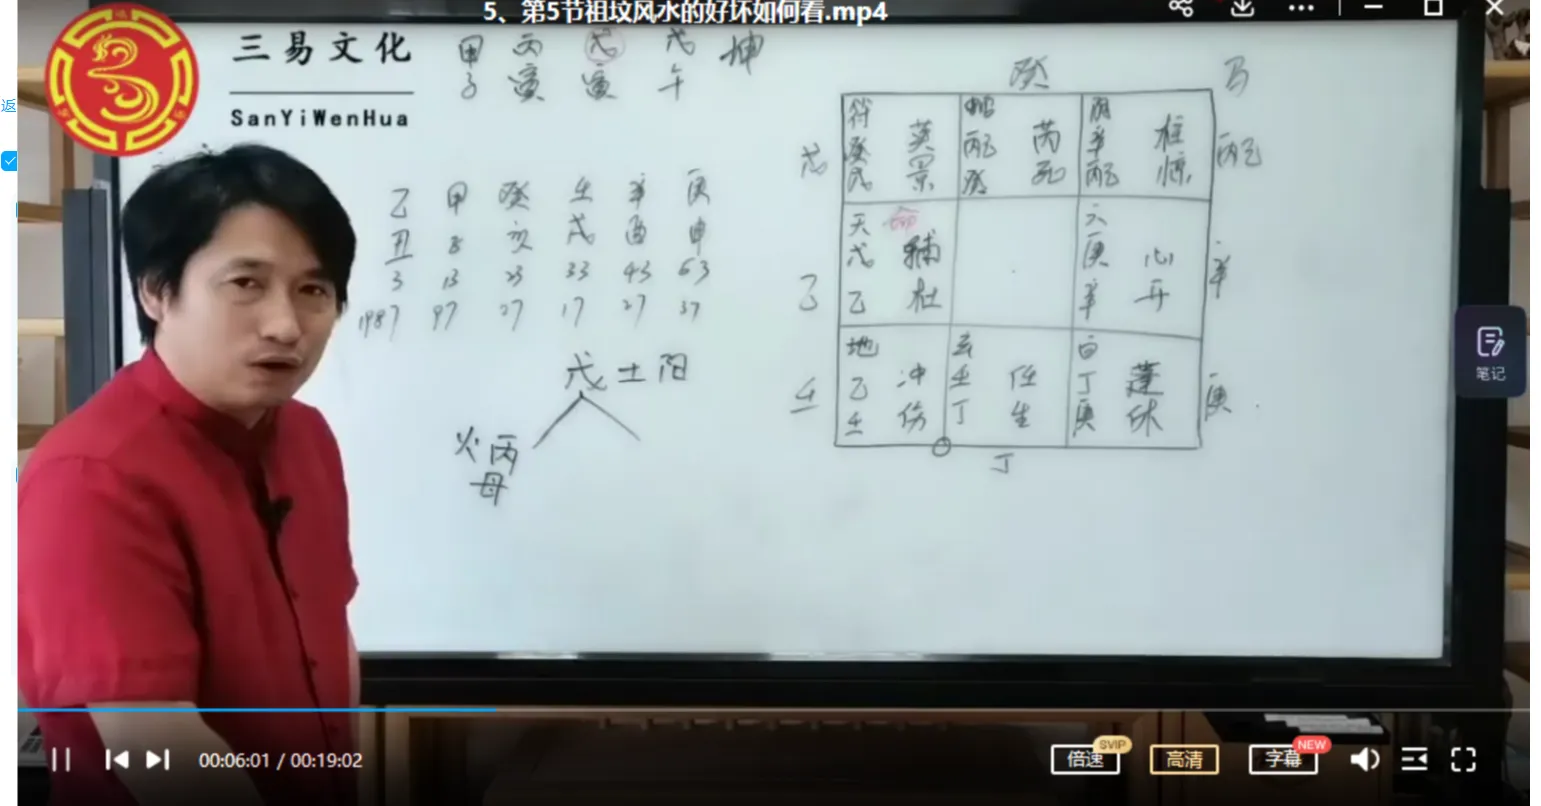 5、第5节祖坟风水的好坏如何看.mp4
返
三易文化
SanYiWenHua
甲 丙 戊 戊 坤
子 寅 寅 午
乙 甲 癸 壬 辛 庚
丑 子 亥 戌 酉 申
3 13 23 33 43 63
1987 97 07 17 27 37
戊土阳
火丙
母
癸 马
戊 丙己
乙 辛
壬 庚
丁
符 英
癸 景
戊
蛇 芮
丙己 死
癸
阴 柱
辛 惊
丙己
天 命
戊 辅
乙 杜
六
庚 心
辛 开
地
乙 冲
壬 伤
玄
壬 任
丁 生
白
丁 蓬
庚 休
笔记
00:06:01 / 00:19:02
倍速 SVIP
高清
字幕 NEW